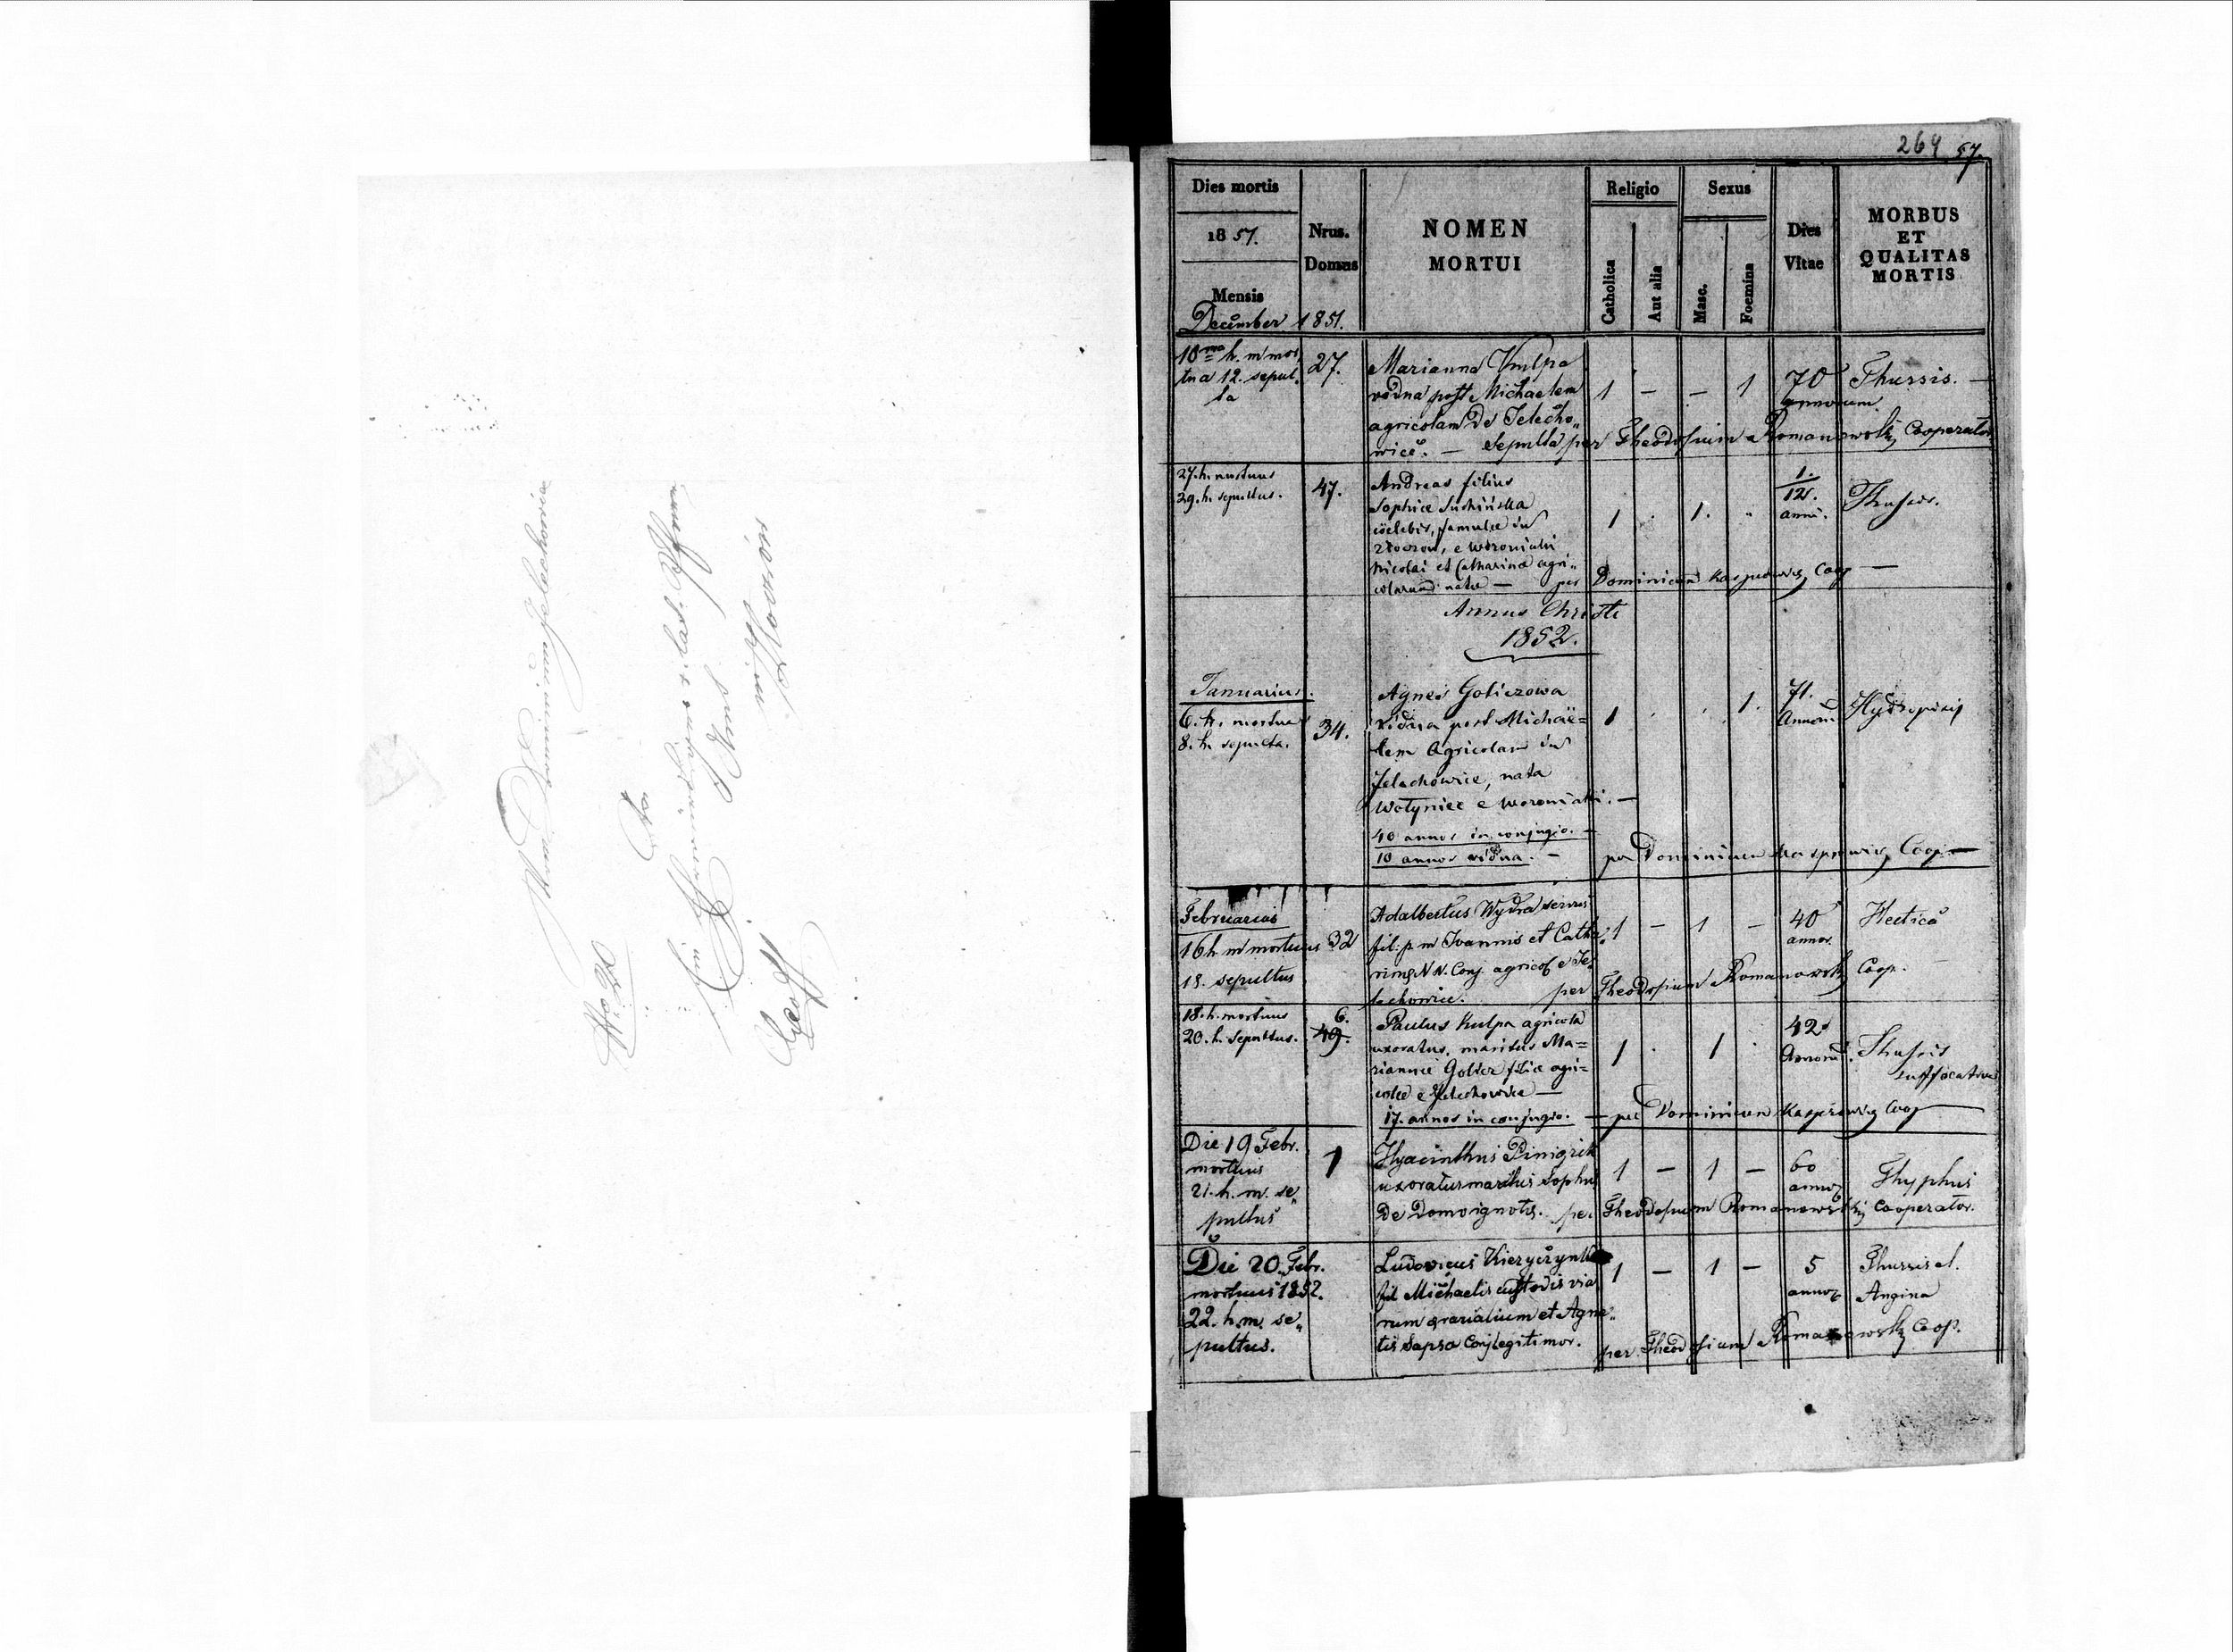 Vom Dominium Jelechowice
No 20
An
Ein
in
Złoczów
264 57.
Dies mortis
1851.
Mensis
December 1851.
Nrus.
Domus
NOMEN
MORTUI
Religio
Catholica
Aut alia
Sexus
Masc.
Foemina
Dies
Vitae
MORBUS
ET
QUALITAS
MORTIS
10ma h. m mor
tua 12. sepul
ta
27.
Marianna Kulpa
vidua post Michaelem
agricolam de Jelecho„
wice. — Sepulta per Theodosium Romanowski Cooperator
1 — — 1
70
annorum
Thussis. —
27. h. mortuus
29. h. sepultus.
47.
Andreas filius
Sophiae
coelebis, famulae in
Złoczow, e Woroniaki
Nicolai et Catharina agri„
colarum natae — per Dominicum Kasprowicz Coop —
1 . 1. .
1/12.
anni.
Thussis.
Annus Christi
1852.
Januarius.
6. h. mortua
8. h. sepulta.
34.
Agnes Goliczowa
vidua post Michaë=
lem Agricolam in
Jelechowice, nata
Wołyniec e Woroniaki. —
40 annos in conjugio. —
10 annos vidua. — per Dominicum Kasprowicz Coop —
1 . . 1.
71.
Annorū
Hydropisis
Februarius
16 h m mortuus
18. sepultus
32
Adalbertus Wydra servus
fil: p m Joannis et Catha:
rinae N N. Conj. agricol e Je„
lechowice. per Theodosium Romanowski Coop.
1 — 1 —
40
annor.
Hectica
18. h. mortuus
20. h. sepultus.
6.
49.
Paulus Kulpa agricola
uxoratus, maritus Ma=
riannae Golicz filiae agri=
colae e Jelechowice —
17. annos in conjugio. — per Dominicum Kasprowicz Coop
1 . 1 .
42
Annorū.
Thussis
suffocativa
Die 19 Febr.
mortuus
21. h. m. se„
pultus
1
Hyacinthus Pinigrik
uxoratus maritus Sophiae
de Domo ignotis. per Theodosium Romanowski Cooperator.
1 — 1 —
60
annor
Thyphus
Die 20. Febr.
mortuus 1852.
22. h. m. se„
pultus.
Ludovicus
fil Michaelis custodis via
rum aerarialium et Agne„
tis Sapsa Conj legitimor. per Theodosium Romanowski Coop.
1 — 1 —
5
annor
Thussis et.
Angina